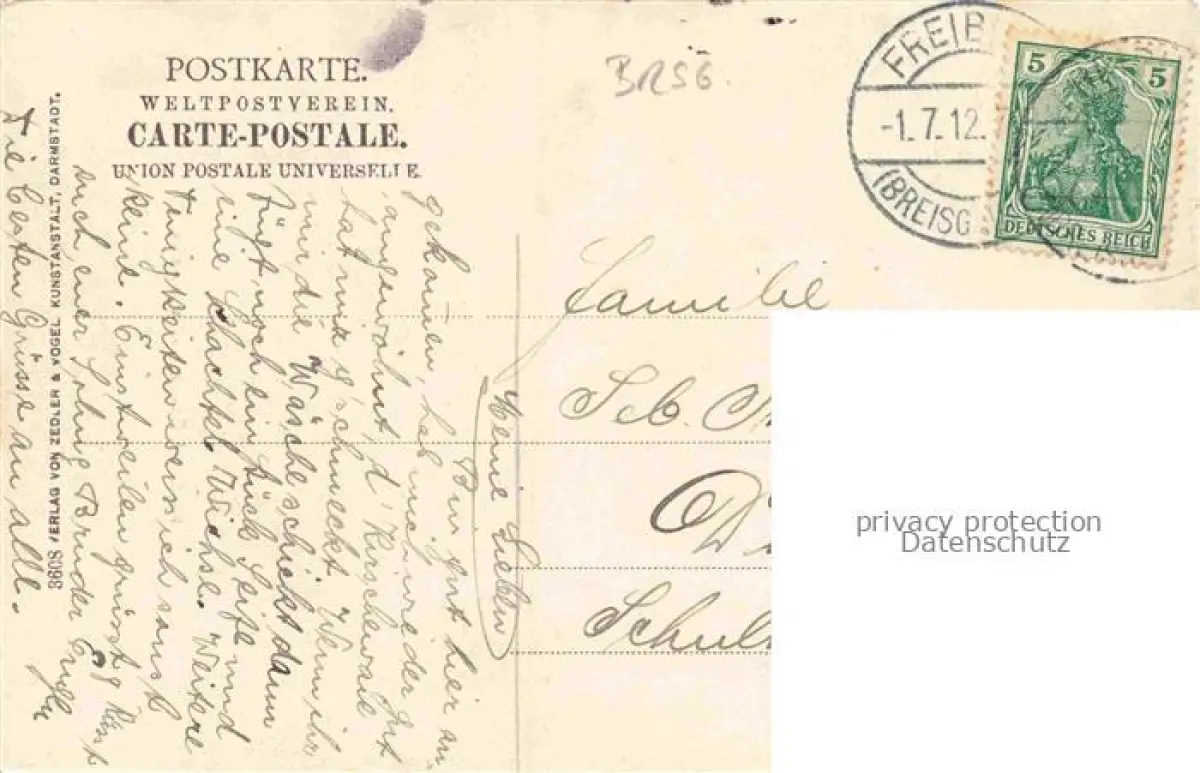 POSTKARTE.
WELTPOSTVEREIN.
CARTE-POSTALE.
UNION POSTALE UNIVERSELLE.
3608 VERLAG VON ZEDLER & VOGEL, KUNSTANSTALT, DARMSTADT.
BR56.
FREIB
-1.7.12.
(BREISG
5 5
DEUTSCHES REICH
Familie
Seb.
Schul
Meine Lieben
Bin gut hier an
gekommen, hab mich wieder gut
angewöhnt, d' Kirschenwaie
hat mir g'schmeckt. Wenn ihr
mir die Wäsche schickt dann
fügt noch ein Stück Seife und
eine Schachtel Wichse. Weitere
Neuigkeiten weiss ich sonst
keine. Einstweilen grüsst &
euch euer Sohn Bruder
Die besten Grüsse an alle.
privacy protection
Datenschutz